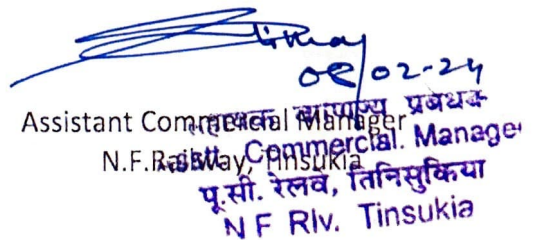 02-24
Assistant Commercial Manager
N.F.Railway, Tinsukia
सहायक वाणिज्य प्रबंधक
Asstt. Commercial. Manager
पू.सी. रेलवे, तिनिसुकिया
N F Rly. Tinsukia